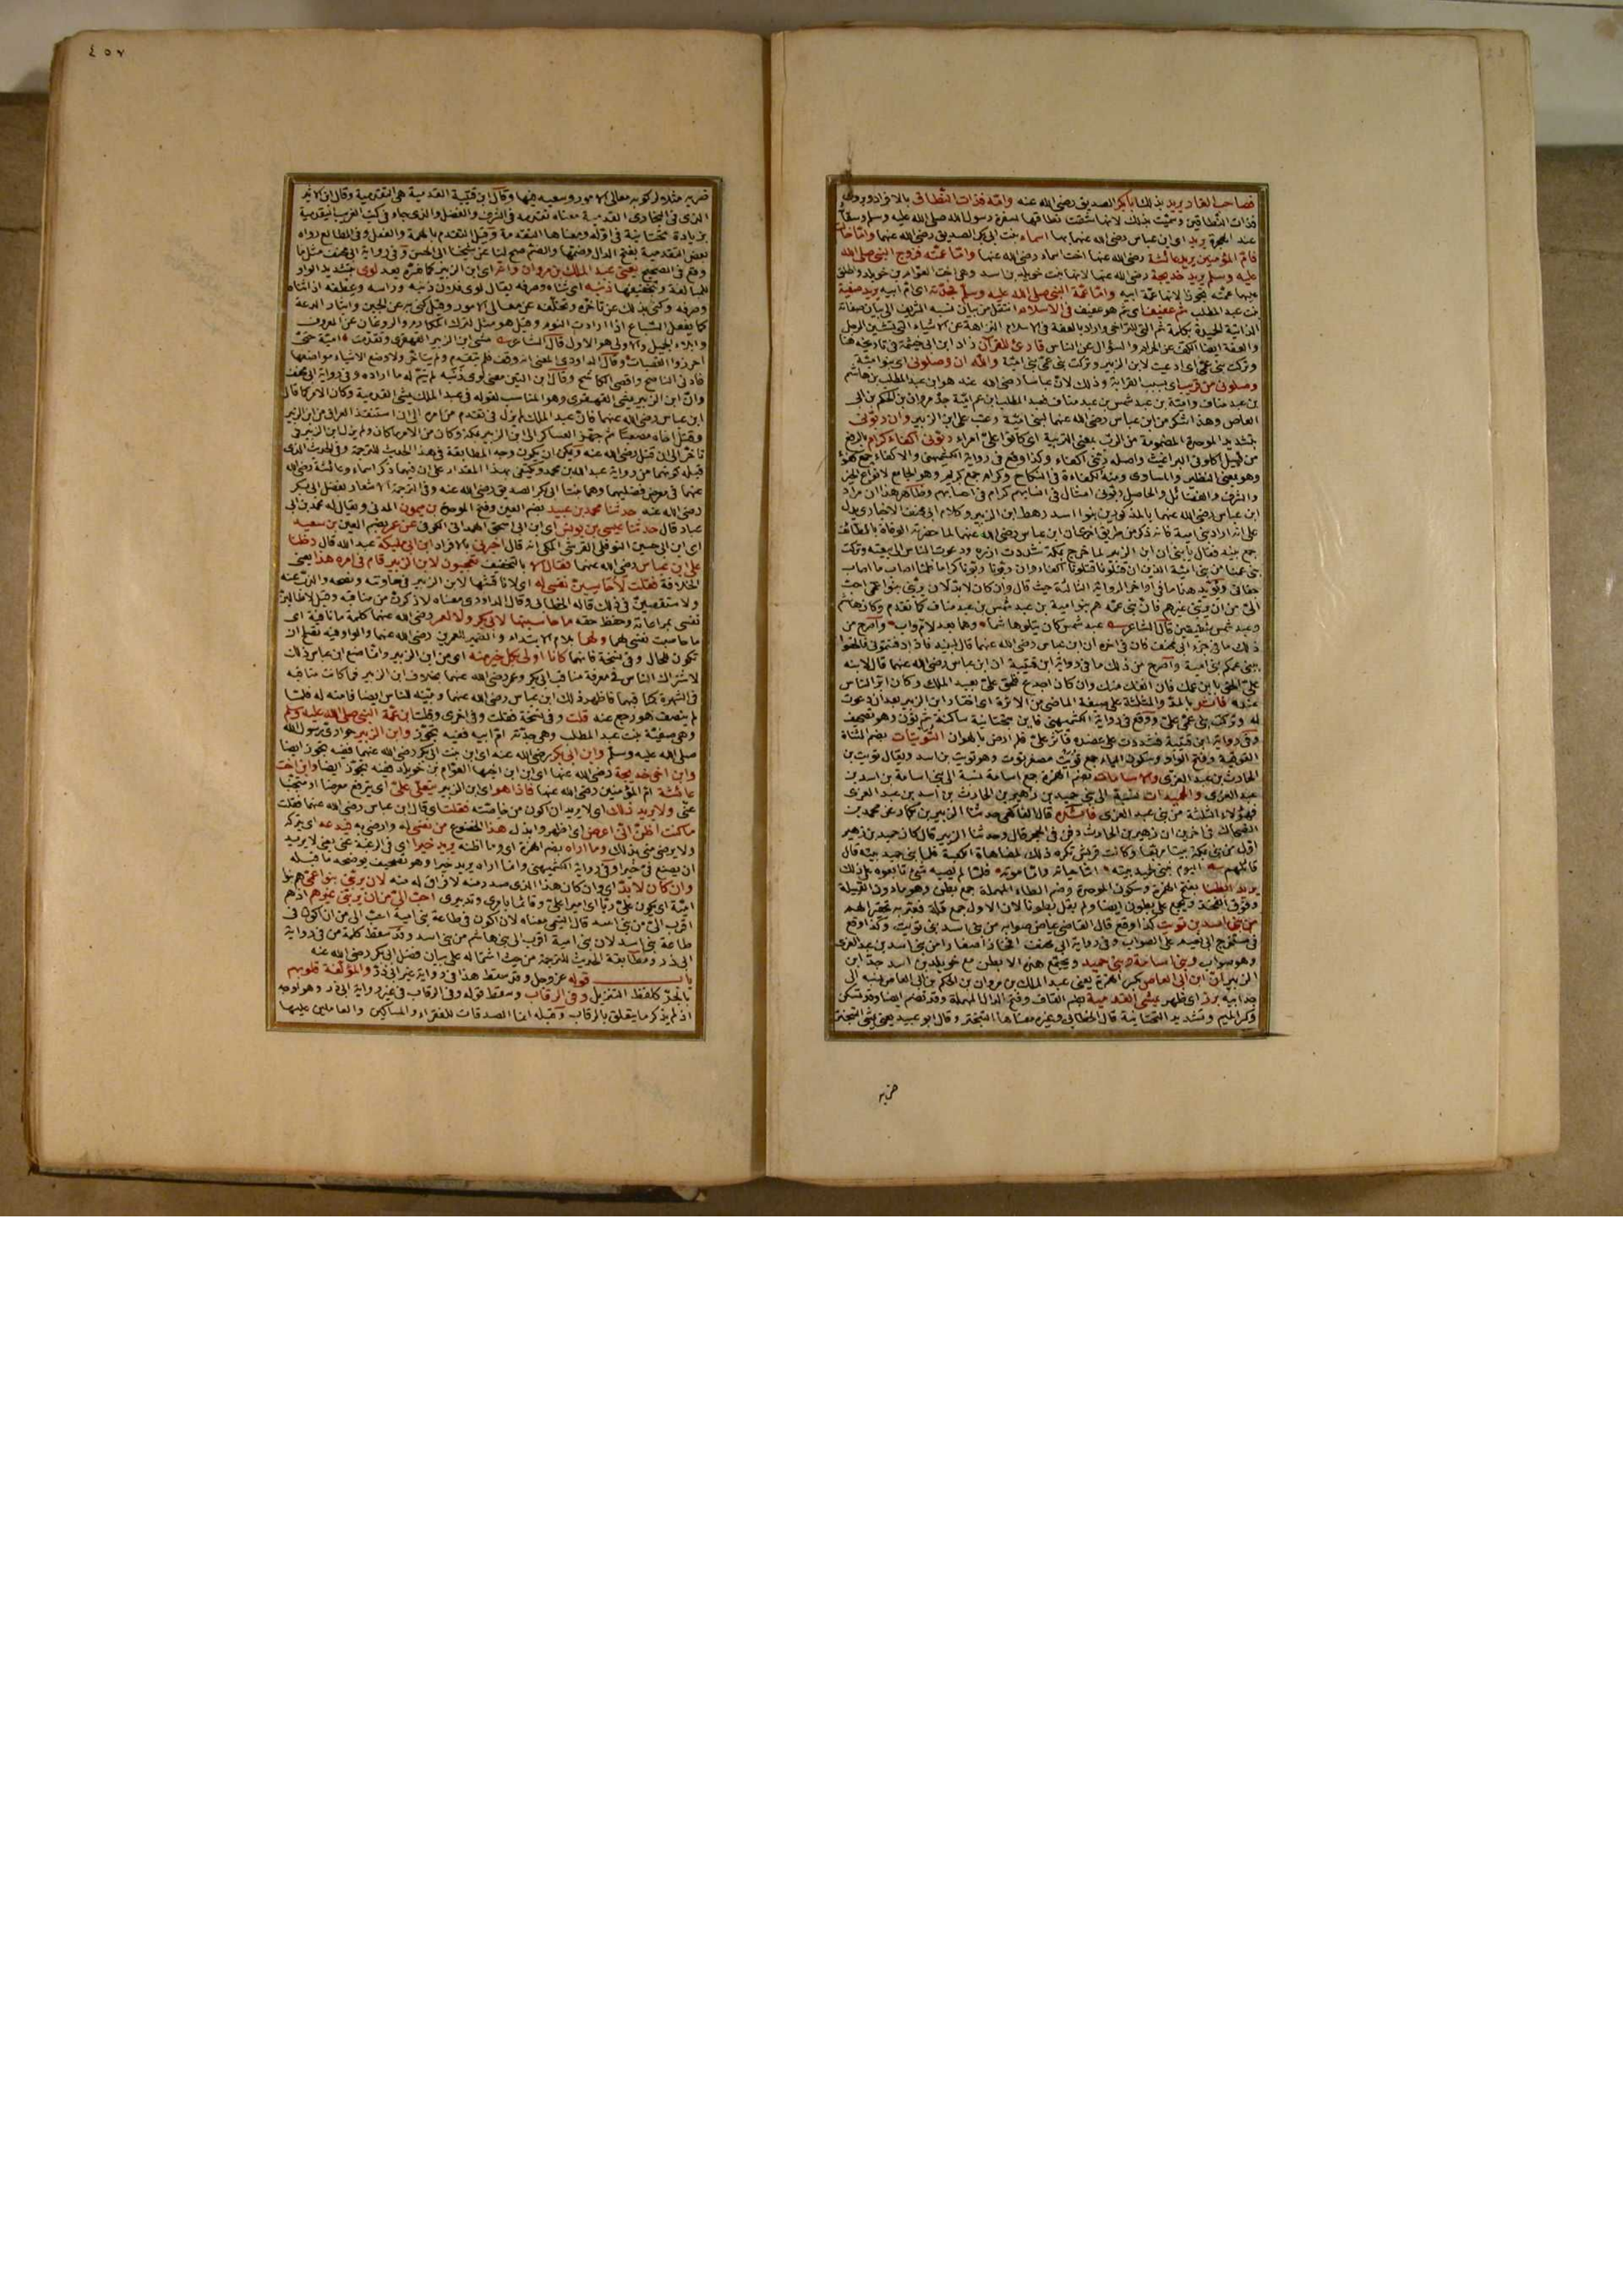 فصاحب الغار يريد بذلك ابا بكر الصديق رضى الله عنه وامه فذات النطاق بالافراد ويروى
فذات النطاقين وسميت بذلك لانها شقت نطاقها لسفرة رسول الله صلى الله عليه وسلم
عند الهجرة يريد اى ابن عباس رضى الله عنهما بها اسماء بنت ابى بكر الصديق رضى الله عنهما واما خالته
فام المؤمنين يريد عائشة رضى الله عنها اخت اسماء رضى الله عنها واما عمته فزوج النبى صلى الله
عليه وسلم يريد خديجة رضى الله عنها لانها بنت خويلد بن اسد وهى اخت العوام بن خويلد واطلق
عليها عمته تجوزا لانها عمة ابيه واما عمة النبى صلى الله عليه وسلم فجدته اى ام ابيه يريد صفية
بنت عبد المطلب ثم عفيف اى ثم هو عفيف فى الاسلام انتقل من بيان نسبه الشريف الى بيان صفاته
الذاتية الحميدة بكلمة ثم
والعفة ايضا الكف عن الحرام والسؤال عن الناس قارئ للقرآن زاد ابن ابى خيثمة فى تاريخه هنا
وتركت بنى عمى اى اذعنت لابن الزبير وتركت بنى عمى بنى امية والله ان وصلونى اى بنو امية
وصلونى من قريب اى بسبب القرابة وذلك لان عباسا رضى الله عنه هو ابن عبد المطلب بن هاشم
بن عبد مناف وامية بن عبد شمس بن عبد مناف فعبد المطلب ابن عم امية جد مروان بن الحكم بن ابى
العاص وهذا شكر من ابن عباس رضى الله عنهما لبنى امية وعتب على ابن الزبير وان ربونى
بتشديد الموحدة المضمومة من الرب بمعنى التربية اى كانوا على امراء ربونى اكفاء كرام بالرفع
من قبيل اكلونى البراغيث واصله ربنى اكفاء وكذا وقع فى رواية الكشميهنى والاكفاء جمع كفؤ
وهو بمعنى النظير والمساوى ومنه الكفاءة فى النكاح وكرام جمع كريم وهو الجامع لانواع الخير
والشرف والفضائل والحاصل ربونى امثال فى انسابهم كرام فى احسابهم وظاهر هذا ان مراد
ابن عباس رضى الله عنهما بالمذكورين بنوا اسد رهط ابن الزبير وكلام ابى مخنف الاخبارى يدل
على انه اراد بنى امية فانه ذكر من طريق اخرى ان ابن عباس رضى الله عنهما لما حضرته الوفاة بالطائف
جمع بنيه فقال يا بنى ان ابن الزبير لما خرج بمكة شددت ازره ودعوت الناس الى بيعته وتركت
بنى عمنا من بنى امية الذين ان قتلونا قتلونا اكفاء وان ربونا ربونا كراما فلما اصاب ما اصاب
جفانى ويؤيد هذا ما فى اواخر الرواية الثالثة حيث قال وان كان لابد لان يربنى بنو عمى احب
الى من ان يربنى غيرهم فان بنى عمه هم بنو امية بن عبد شمس بن عبد مناف كما تقدم وكان هاشم
وعبد شمس قال الشاعر عبد شمس كان يتلو هاشما وهما بعد لام ولاب واصرح من
ذلك ما فى خبر ابى مخنف فان فى اخره ان ابن عباس رضى الله عنهما قال لبنيه فاذا دفنتمونى فالحقوا
ببنى عمكم بنى امية واصرح من ذلك ما فى رواية ابن قتيبة ان ابن عباس رضى الله عنهما قال لابنه
على الحق بابن عمك فان انفك منك وان كان اجدع فلحق على بعبد الملك وكان اثر الناس
عنده فآثر بالمد والمثلثة على صيغة الماضى من الاثرة اى اختار ابن الزبير بعد ان دعوت
له وتركت بنى عمى على ووقع فى رواية الكشميهنى فاين بتحتانية ساكنة ثم نون وهو تصحيف
وفى رواية ابن قتيبة فشددت على عضده فآثر على فلم ارض بالهوان التويتات بضم المثناة
الفوقية وفتح الواو وسكون الياء جمع تويت مصغر توت وهو تويت بن اسد ويقال تويت بن
الحارث بن عبد العزى والاسامات بضم الهمزة جمع اسامة نسبة الى بنى اسامة بن اسد بن
عبد العزى والحميدات نسبة الى بنى حميد بن زهير بن الحارث بن اسد بن عبد العزى
فهؤلاء الثلاثة من بنى عبد العزى فائدة قال الفاكهى حدثنا الزبير بن بكار عن محمد بن
الضحاك فى اخرين ان زهير بن الحارث دفن فى الحجر قال وحدثنا الزبير قال كان حميد بن زهير
اول من بنى بمكة بيتا مربعا وكانت قريش تكره ذلك لمضاهاة الكعبة فلما بنى حميد بيته قال
قائلهم اليوم يبنى لحميد بيته اما حياته واما موته فلما لم يصبه شئ تابعوه على ذلك
يريد ابطنا بفتح الهمزة وسكون الموحدة وضم الطاء المهملة جمع بطن وهو ما دون القبيلة
وفوق الفخذ ويجمع على بطون ايضا ولم يقل بطونا لان الاول جمع قلة فعبر به تحقيرا لهم
من بنى اسد بن تويت كذا وقع قال القاضى عياض صوابه من بنى اسد بنى تويت وكذا وقع
فى مستخرج ابى نعيم على الصواب وفى رواية ابى مخنف افخاذا صغارا من بنى اسد بن عبد العزى
وهو صواب وبنى اسامة وبنى حميد ويجتمع هذه الابطن مع خويلد بن اسد جد ابن
الزبير ان ابن ابى العاص بكسر الهمزة يعنى عبد الملك بن مروان بن الحكم بن ابى العاص نسبه الى
جد ابيه برز اى ظهر يمشى القدمية بضم القاف وفتح الدال المهملة وقد تضم ايضا وقد تسكن
وكسر الميم وتشديد التحتانية قال الخطابى وغيره معناها التبختر وقال ابو عبيد يعنى يمشى التبختر
ضربه
٤٥٧
ضربه مثلا لركوبه معالى الامور وسعيه فيها وقال ابن قتيبة القدمية هى التقدمية وقال ابن الاثير
الذى فى البخارى القدمية معناه تقدمه فى الشرف والفضل والذى جاء فى كتب الغريب اليقدمية
بزيادة تحتانية فى اوله ومعناها التقدمة وقيل التقدم بالهمة والفعل وفى المطالع رواه
بعض القدمية بفتح الدال وضمها والضم صح لنا عن شيخنا ابى الحسن وفى رواية ابى مخنف مثل ما
وقع فى الصحيح يعنى عبد الملك بن مروان وانه اى ابن الزبير كما صرح بعد لوى بتشديد الواو
للمبالغة وتخفيفها ذنبه اى ثناه وصرفه يقال لوى فلان ذنبه وراسه وعطفه اذا ثناه
وصرفه وكنى بذلك عن تاخره وتخلفه عن معالى الامور وقيل كنى به عن الجبن وايثار الدعة
كما يفعل السباع اذا ارادت النوم وقيل هو مثل لترك المكارم والروغان عن المعروف
وايلاء الجميل والاولى هو الاول قال الشاعر مشى ابن الزبير القهقرى وتقدمت امية حتى
احرزوا القصبات وقال الداودى المعنى انه وقف فلم يتقدم ولم يتاخر ولا وضع الاشياء مواضعها
فادنى الناصح واقصى الكاشح وقال ابن التين معنى لوى ذنبه لم يتم له ما اراده وفى رواية ابى مخنف
وان ابن الزبير يمشى القهقرى وهو المناسب لقوله فى عبد الملك يمشى القدمية وكان الامر كما قال
ابن عباس رضى الله عنهما فان عبد الملك لم يزل فى تقدم من امره الى ان استنقذ العراق من ابن الزبير
وقتل اخاه مصعبا ثم جهز العساكر الى ابن الزبير بمكة وكان من الامر ما كان ولم يزل ابن الزبير فى
تاخر الى ان قتل رضى الله عنه ويمكن ان يكون وجه المطابقة فى هذا الحديث للترجمة وفى الحديث الذى
قبله كونهما من رواية عبد الله بن محمد ويكتفى بهذا المقدار على ان فيهما ذكر اسماء وعائشة رضى الله
عنهما فى معرض فضلهما وهما بنتا ابى بكر الصديق رضى الله عنه وفى الترجمة الاشعار بفضل ابى بكر
رضى الله عنه حدثنا محمد بن عبيد بضم العين وفتح الموحدة بن ميمون المدنى ويقال له محمد بن ابى
عباد قال حدثنا عيسى بن يونس اى ابن ابى اسحق الهمدانى الكوفى عن عمر بضم العين بن سعيد
اى ابن ابى حسين النوفلى القرشى المكى انه قال اخبرنى بالافراد ابن ابى مليكة عبد الله قال دخلنا
على ابن عباس رضى الله عنهما فقال الا بالتخفيف تعجبون لابن الزبير قام فى امره هذا يعنى
الخلافة فقلت لاحاسبن نفسى له اى لاناقشنها لابن الزبير فى معاونته ونصحه والذب عنه
ولاستقصين فى ذلك قاله الخطابى وقال الداودى معناه لاذكرن من مناقبه وقيل لاطالبن
نفسى بمراعاته وحفظ حقه ما حاسبتها لابى بكر ولا لعمر رضى الله عنهما كلمة ما نافية اى
ما حاسبت نفسى لهما ولهما بلام الابتداء والضمير للعمرين رضى الله عنهما والواو فيه يصلح ان
تكون للحال وفى نسخة فانهما كانا اولى بكل خير منه اى من ابن الزبير وانما صنع ابن عباس ذلك
لاشتراك الناس فى معرفة مناقب ابى بكر وعمر رضى الله عنهما بخلاف ابن الزبير فما كانت مناقبه
فى الشهرة كما فيهما فاظهر ذلك ابن عباس رضى الله عنهما وبينه للناس ايضا فامنه له فلما
لم ينصف هو رجع عنه قلت وفى نسخة فقلت وفى اخرى وقلت ابن عمة النبى صلى الله عليه وسلم
وهى صفية بنت عبد المطلب وهى جدته ام ابيه ففيه تجوز وابن الزبير حوارى رسول الله
صلى الله عليه وسلم وابن ابى بكر رضى الله عنه اى ابن بنت ابى بكر رضى الله عنهما ففيه تجوز ايضا
وابن اخى خديجة رضى الله عنها اى ابن ابن اخيها العوام بن خويلد ففيه تجوز ايضا وابن اخت
عائشة ام المؤمنين رضى الله عنها فاذا هو اى ابن الزبير يتعلى على اى يترفع معرضا او متنحيا
عنى ولا يريد ذلك اى لا يريد ان اكون من خاصته فقلت اى قال ابن عباس رضى الله عنهما فقلت
ما كنت اظن انى اعرض اى اظهر وابذل هذا الخضوع من نفسى له وارضى به فيدعه اى يتركه
ولا يرضى منى بذلك وما اراه بضم الهمزة اى وما اظنه يريد خيرا اى فى الرغبة عنى يعنى لا يريد
ان يصنع فى خيرا وفى رواية الكشميهنى وانما اراه يريد خيرا وهو تصحيف يوضحه ما قبله
وان كان لابد اى وان كان هذا الذى صدر منه لا فراق له منه لان يربنى بنو عمى هم بنو
امية اى يكون على ربا اى اميرا على وقائما بامرى وتدبيرى احب الى من ان يربنى غيرهم اذ هم
اقرب الى من بنى اسد قال التيمى معناه لان اكون فى طاعة بنى امية احب الى من ان اكون فى
طاعة بنى اسد لان بنى امية اقرب الى بنى هاشم من بنى اسد وقد سقط كلمة من فى رواية
ابى ذر ومطابقة الحديث للترجمة من حيث اشتماله على بيان فضل ابى بكر رضى الله عنه
باب قوله عز وجل وقد سقط هذا فى رواية غير ابى ذر والمؤلفة قلوبهم
بالجر كلفظ التنزيل وفى الرقاب وسقط قوله وفى الرقاب فى غير رواية ابى ذر وهو اوجه
اذ لم يذكر ما يتعلق بالرقاب وقبله انما الصدقات للفقراء والمساكين والعاملين عليها